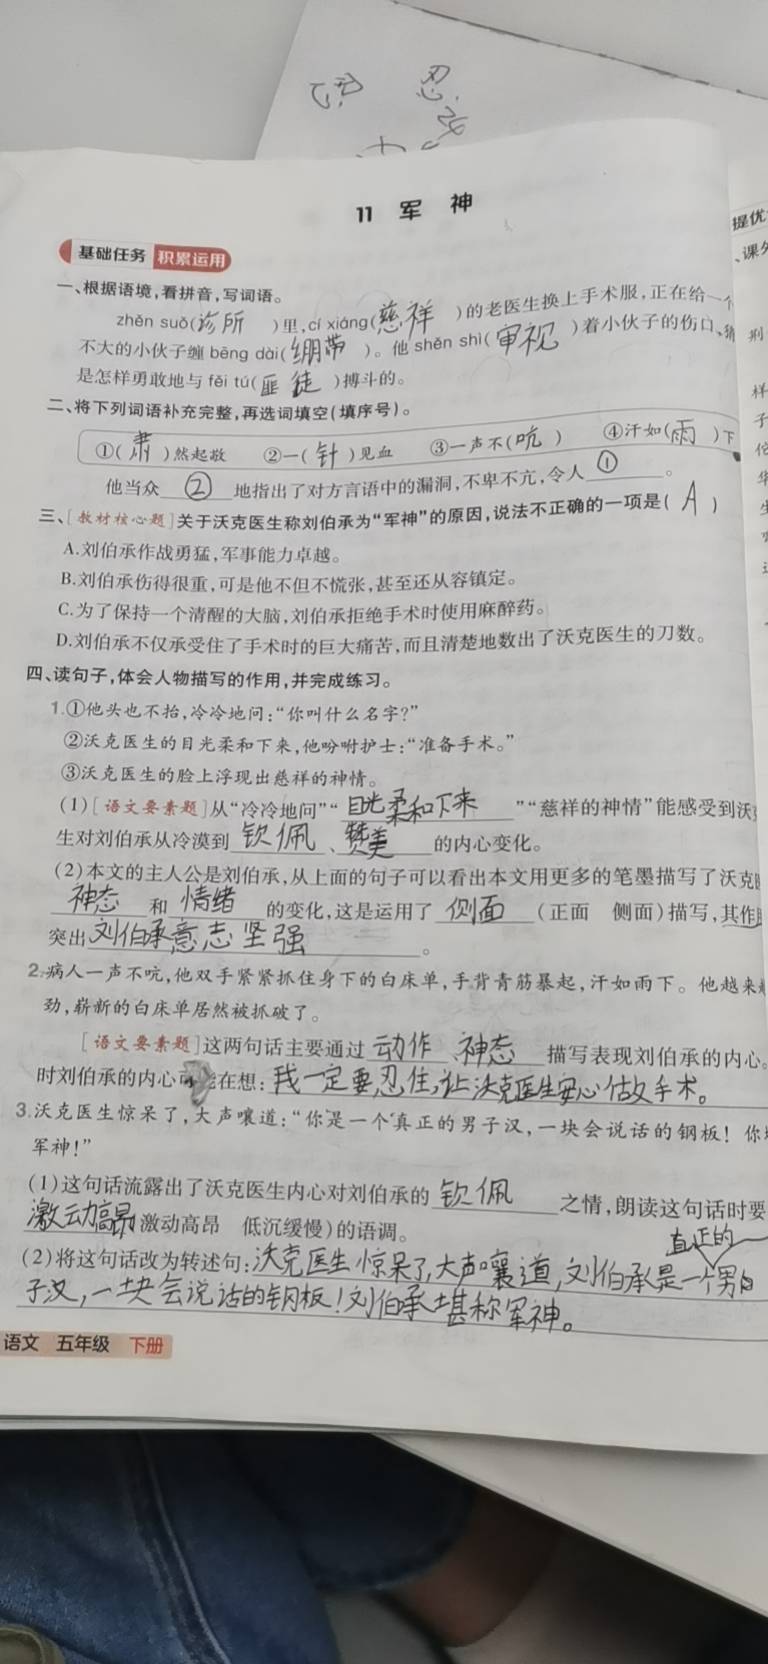 忍 忍
11 军 神
提优
基础任务 积累运用
、课外
一、根据语境,看拼音,写词语。
zhěn suǒ(诊所 )里,cí xiáng(慈祥 )的老医生换上手术服,正在给一个
不大的小伙子缠 bēng dài(绷带 )。他 shěn shì(审视 )着小伙子的伤口、猜
是怎样勇敢地与 fěi tú(匪 徒 )搏斗的。
二、将下列词语补充完整,再选词填空(填序号)。
①( 肃 )然起敬 ②一( 针 )见血 ③一声不(吭 ) ④汗如(雨 )下
他当众 ② 地指出了对方言语中的漏洞,不卑不亢,令人 ① 。
三、[教材核心题]关于沃克医生称刘伯承为“军神”的原因,说法不正确的一项是( A )
A.刘伯承作战勇猛,军事能力卓越。
B.刘伯承伤得很重,可是他不但不慌张,甚至还从容镇定。
C.为了保持一个清醒的大脑,刘伯承拒绝手术时使用麻醉药。
D.刘伯承不仅承受住了手术时的巨大痛苦,而且清楚地数出了沃克医生的刀数。
四、读句子,体会人物描写的作用,并完成练习。
1.①他头也不抬,冷冷地问:“你叫什么名字?”
②沃克医生的目光柔和下来,他吩咐护士:“准备手术。”
③沃克医生的脸上浮现出慈祥的神情。
(1)[语文要素题]从“冷冷地问”“ 目光柔和下来 ”“慈祥的神情”能感受到沃
生对刘伯承从冷漠到 钦佩 、 赞美 的内心变化。
(2)本文的主人公是刘伯承,从上面的句子可以看出本文用更多的笔墨描写了沃克
神态 和 情绪 的变化,这是运用了 侧面 (正面 侧面)描写,其作
突出刘伯承意志坚强 。
2.病人一声不吭,他双手紧紧抓住身下的白床单,手背青筋暴起,汗如雨下。他越来
劲,崭新的白床单居然被抓破了。
[语文要素题]这两句话主要通过 动作 、神态 描写表现刘伯承的内心。
时刘伯承的内心可能在想:我一定要忍住,让沃克医生安心做手术。
3.沃克医生惊呆了,大声嚷道:“你是一个真正的男子汉,一块会说话的钢板! 你
军神!”
(1)这句话流露出了沃克医生内心对刘伯承的 钦佩 之情,朗读这句话时要
激动高昂(激动高昂 低沉缓慢)的语调。
真正的
(2)将这句话改为转述句:沃克医生惊呆了,大声嚷道,刘伯承是一个男
子汉,一块会说话的钢板!刘伯承堪称军神。
语文 五年级 下册